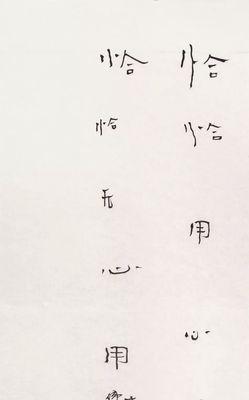 恰恰用心
恰恰无心用